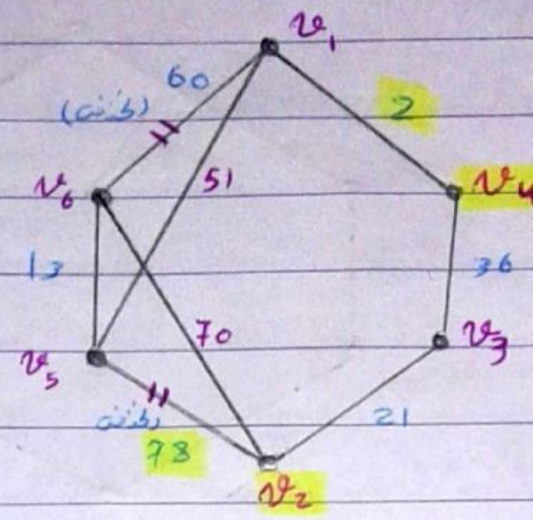 v₁
60
2
(حذف)
v₆
51
v₄
13
36
70
v₃
v₅
حذف
21
78
v₂